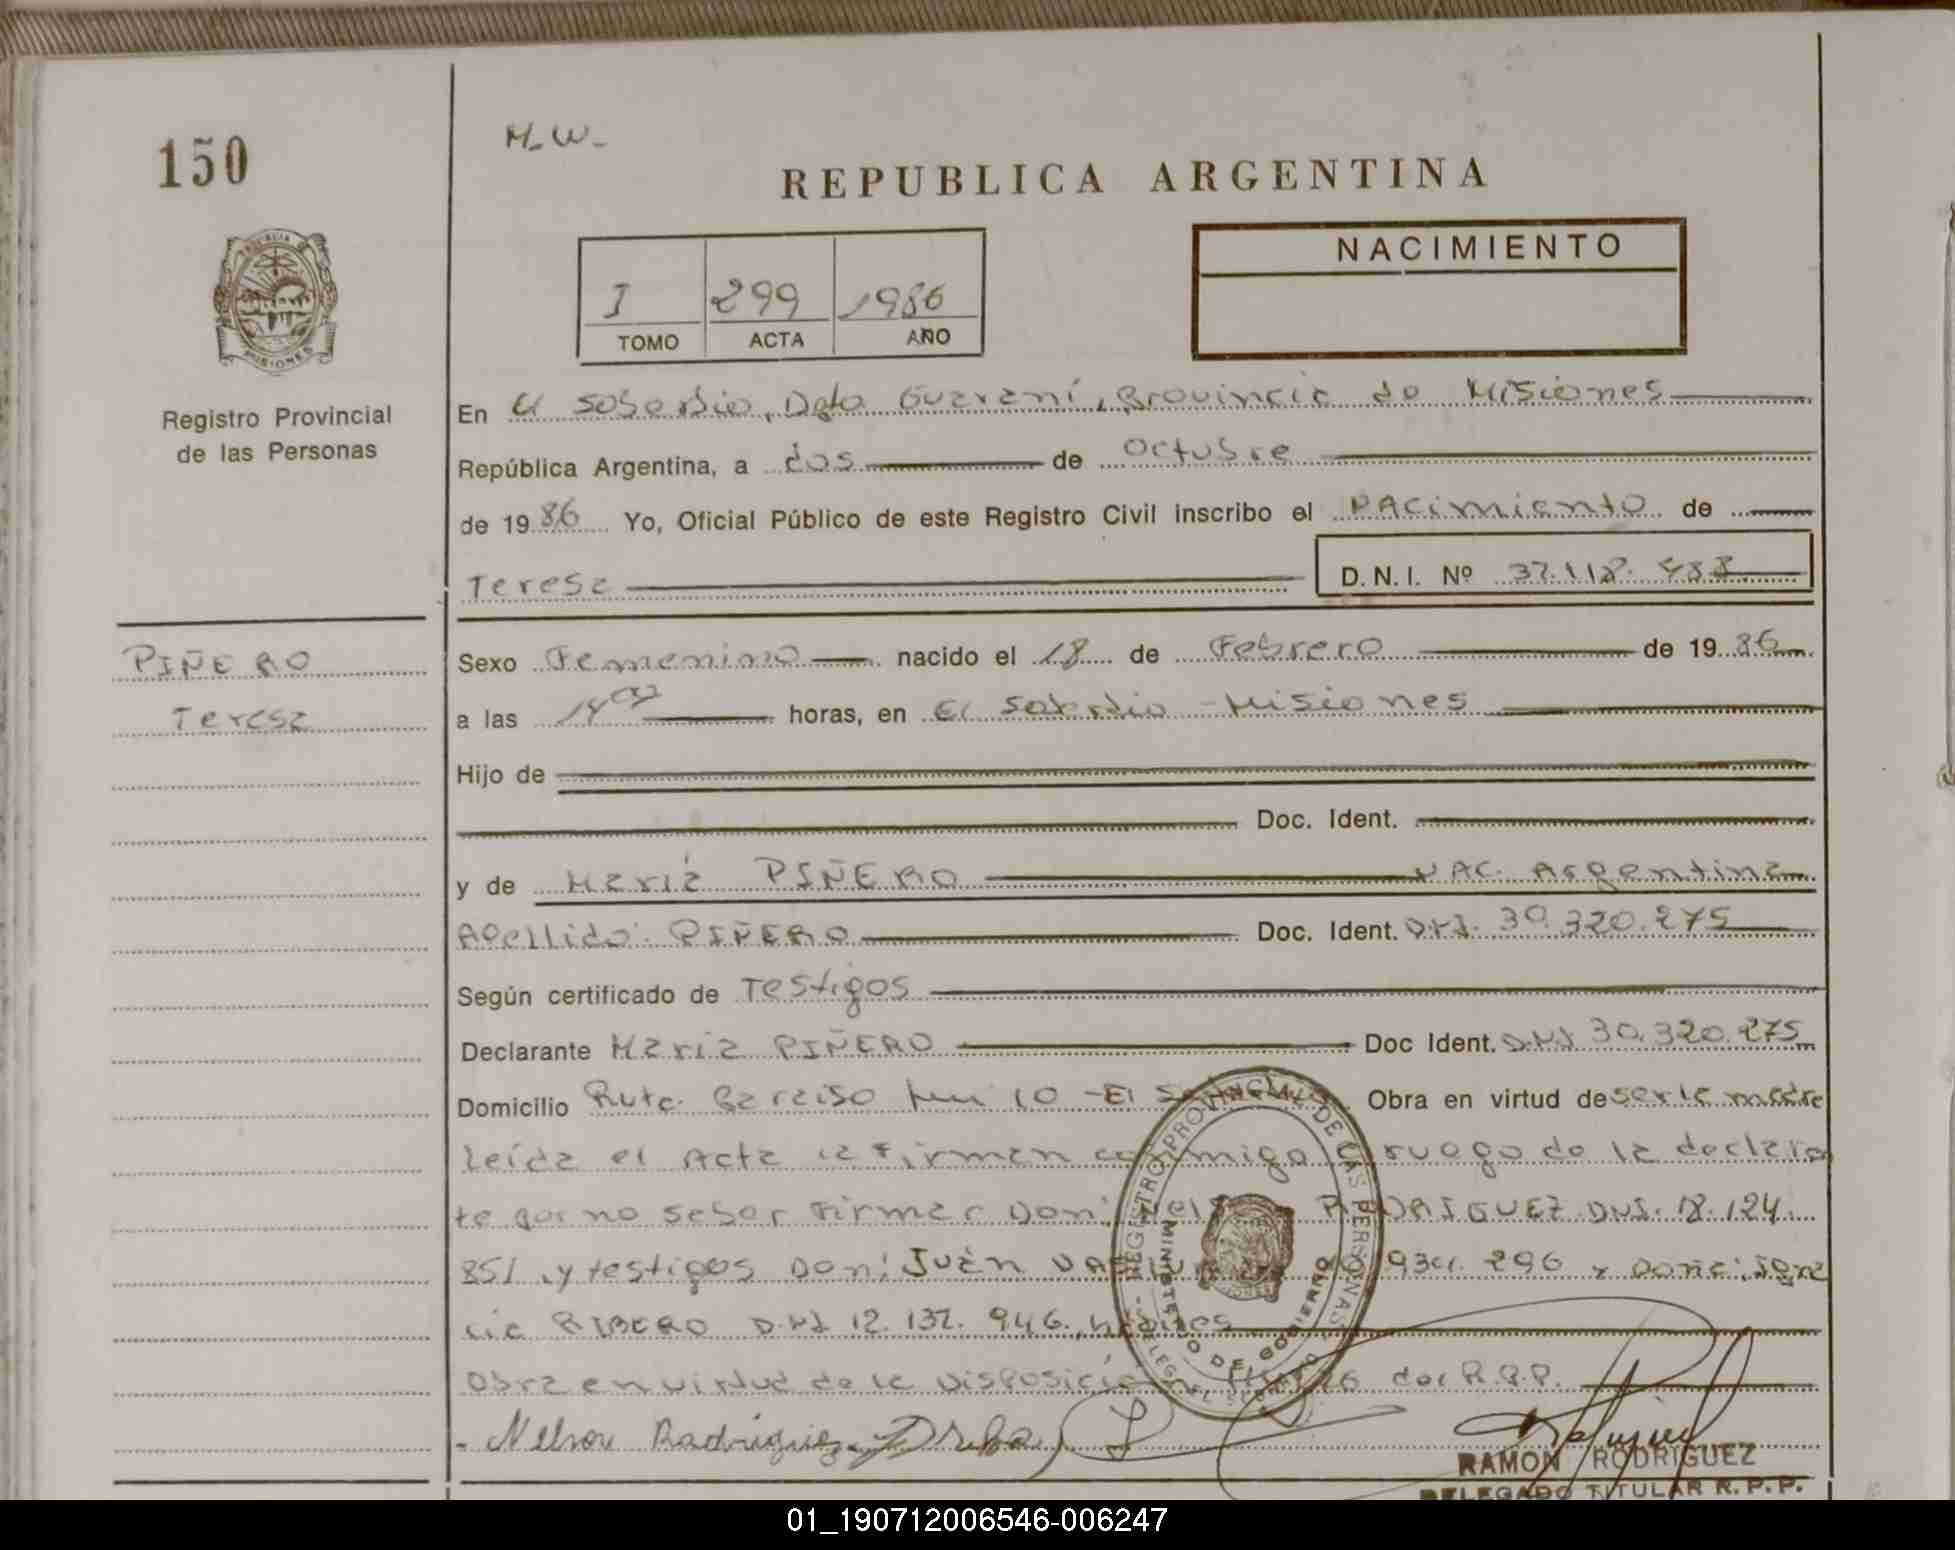 150
M-W-
REPUBLICA ARGENTINA
I 299 1986
TOMO ACTA AÑO
NACIMIENTO
MISIONES
Registro Provincial
de las Personas
En El Soberbio, Dpto Guaraní, Provincia de Misiones
República Argentina, a dos de Octubre
de 1986 Yo, Oficial Público de este Registro Civil inscribo el Nacimiento de
Teresa D.N.I. Nº 32.118.488
PIÑERO
Teresa
Sexo Femenino nacido el 18 de Febrero de 1986
a las 14 00 horas, en El Soberbio - Misiones
Hijo de
Doc. Ident.
y de María PIÑERO NAC. Argentina
Apellido: PIÑERO Doc. Ident. DNI. 30.320.275
Según certificado de Testigos
Declarante María PIÑERO Doc Ident. DNI 30.320.275
Domicilio Ruta Paraiso km 10 - El Obra en virtud de ser la madre
Leída el Acta la firman conmigo a ruego de la declaran
te por no saber firmar Don: Nelson RODRIGUEZ DNI. 18.124.
851, y testigos Don: Juan 296 y Doña: Igna
cia RIBERO DNI 12.137.946, hábiles
Obra en virtud de la Disposición del R.P.P.
REGISTRO PROVINCIAL DE LAS PERSONAS
MINISTERIO DE GOBIERNO
Nelson Rodriguez
RAMON RODRIGUEZ
DELEGADO TITULAR R.P.P.
01_190712006546-006247